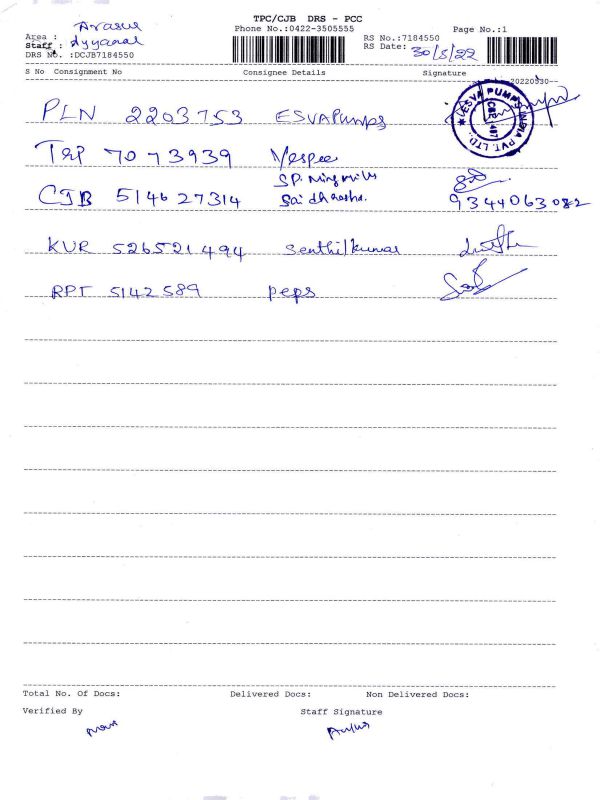 TPC/CJB DRS - PCC
Phone No.:0422-3505555
Page No.:1
Area : Arasur
Staff : Ayyanar
DRS No. :DCJB7184550
RS No.:7184550
RS Date: 30/5/22
S No Consignment No Consignee Details Signature
20220530
PLN 2203753 ESVAPumps
ESVA PUMPS INDIA PVT. LTD.
CBE
TRP 7073939 Vespee
SP.
CJB 514627314 Sai dharsha. 9344063082
KUR 526521494 Senthilkumar
RPT 5142589 peps
Total No. Of Docs: Delivered Docs: Non Delivered Docs:
Verified By Staff Signature